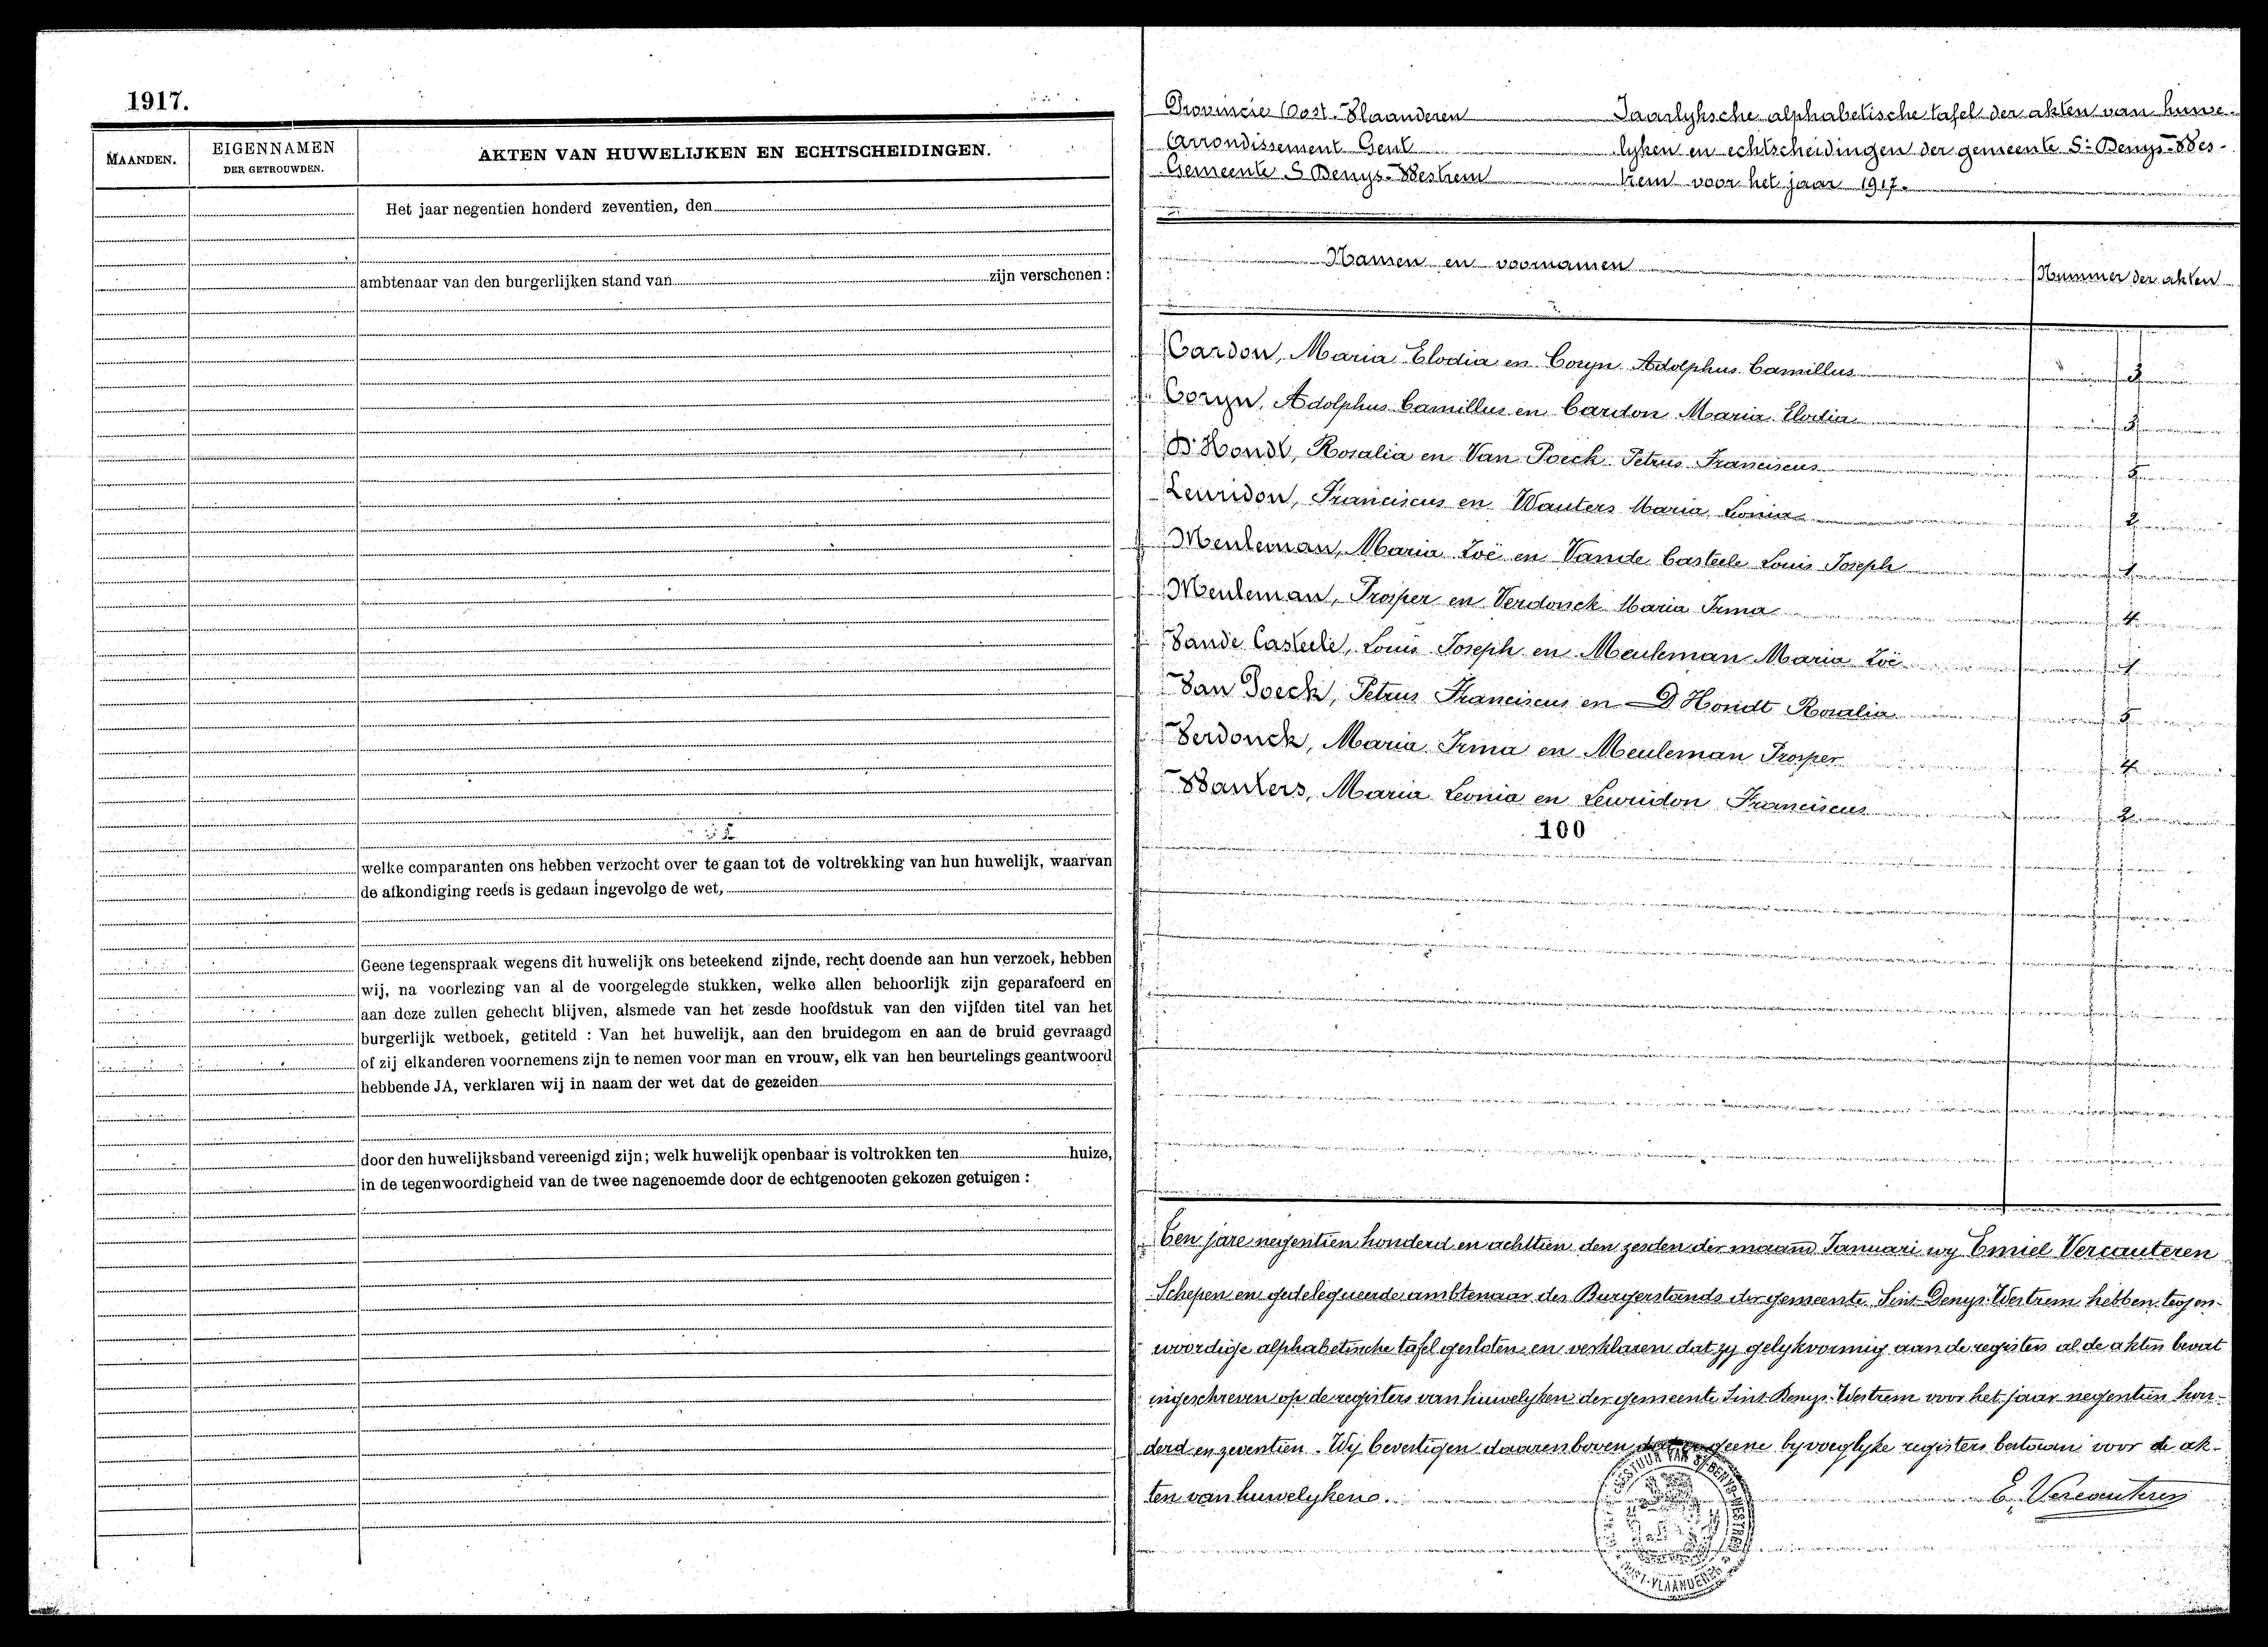 1917.
MAANDEN.
EIGENNAMEN
DER GETROUWDEN.
AKTEN VAN HUWELIJKEN EN ECHTSCHEIDINGEN.
Het jaar negentien honderd zeventien, den
ambtenaar van den burgerlijken stand van zijn verschenen :
welke comparanten ons hebben verzocht over te gaan tot de voltrekking van hun huwelijk, waarvan
de afkondiging reeds is gedaan ingevolge de wet,
Geene tegenspraak wegens dit huwelijk ons beteekend zijnde, recht doende aan hun verzoek, hebben
wij, na voorlezing van al de voorgelegde stukken, welke allen behoorlijk zijn geparafeerd en
aan deze zullen gehecht blijven, alsmede van het zesde hoofdstuk van den vijfden titel van het
burgerlijk wetboek, getiteld : Van het huwelijk, aan den bruidegom en aan de bruid gevraagd
of zij elkanderen voornemens zijn te nemen voor man en vrouw, elk van hen beurtelings geantwoord
hebbende JA, verklaren wij in naam der wet dat de gezeiden
door den huwelijksband vereenigd zijn; welk huwelijk openbaar is voltrokken ten huize,
in de tegenwoordigheid van de twee nagenoemde door de echtgenooten gekozen getuigen :
Provincie Oost-Vlaanderen
Arrondissement Gent
Gemeente S Denys-Westrem
Jaarlyksche alphabetische tafel der akten van huwe-
lyken en echtscheidingen der gemeente St Denys-Wes-
trem voor het jaar 1917.
Namen en voornamen Nummer der akten
Cardon, Maria Elodia en Coryn Adolphus Camillus 3
Coryn, Adolphus Camillus en Cardon Maria Elodia 3
D'Hondt, Rosalia en Van Poeck Petrus Franciscus 5
Leuridon, Franciscus en Wauters Maria Leonia 2
Meuleman, Maria Zoë en Vande Casteele Louis Joseph 1
Meuleman, Prosper en Verdonck Maria Irma 4
Vande Casteele, Louis Joseph en Meuleman Maria Zoë 1
Van Poeck, Petrus Franciscus en D'Hondt Rosalia 5
Verdonck, Maria Irma en Meuleman Prosper 4
Wauters, Maria Leonia en Leuridon Franciscus 2
100
Ten jare negentien honderd en achttien den zesden der maand Januari wy Emiel Vercauteren
Schepen en gedelegueerde ambtenaar des Burgerstands der gemeente Sint-Denys-Westrem hebben tegen-
woordige alphabetische tafel gesloten en verklaren dat zy gelykvormig aan de registers al de akten bevat
ingeschreven op de registers van huwelyken der gemeente Sint-Denys-Westrem voor het jaar negentien hon-
derd en zeventien. Wy bevestigen daarenboven dat er geene byvoeglyke registers bestaan voor de ak-
ten van huwelyken.
E. Vercauteren